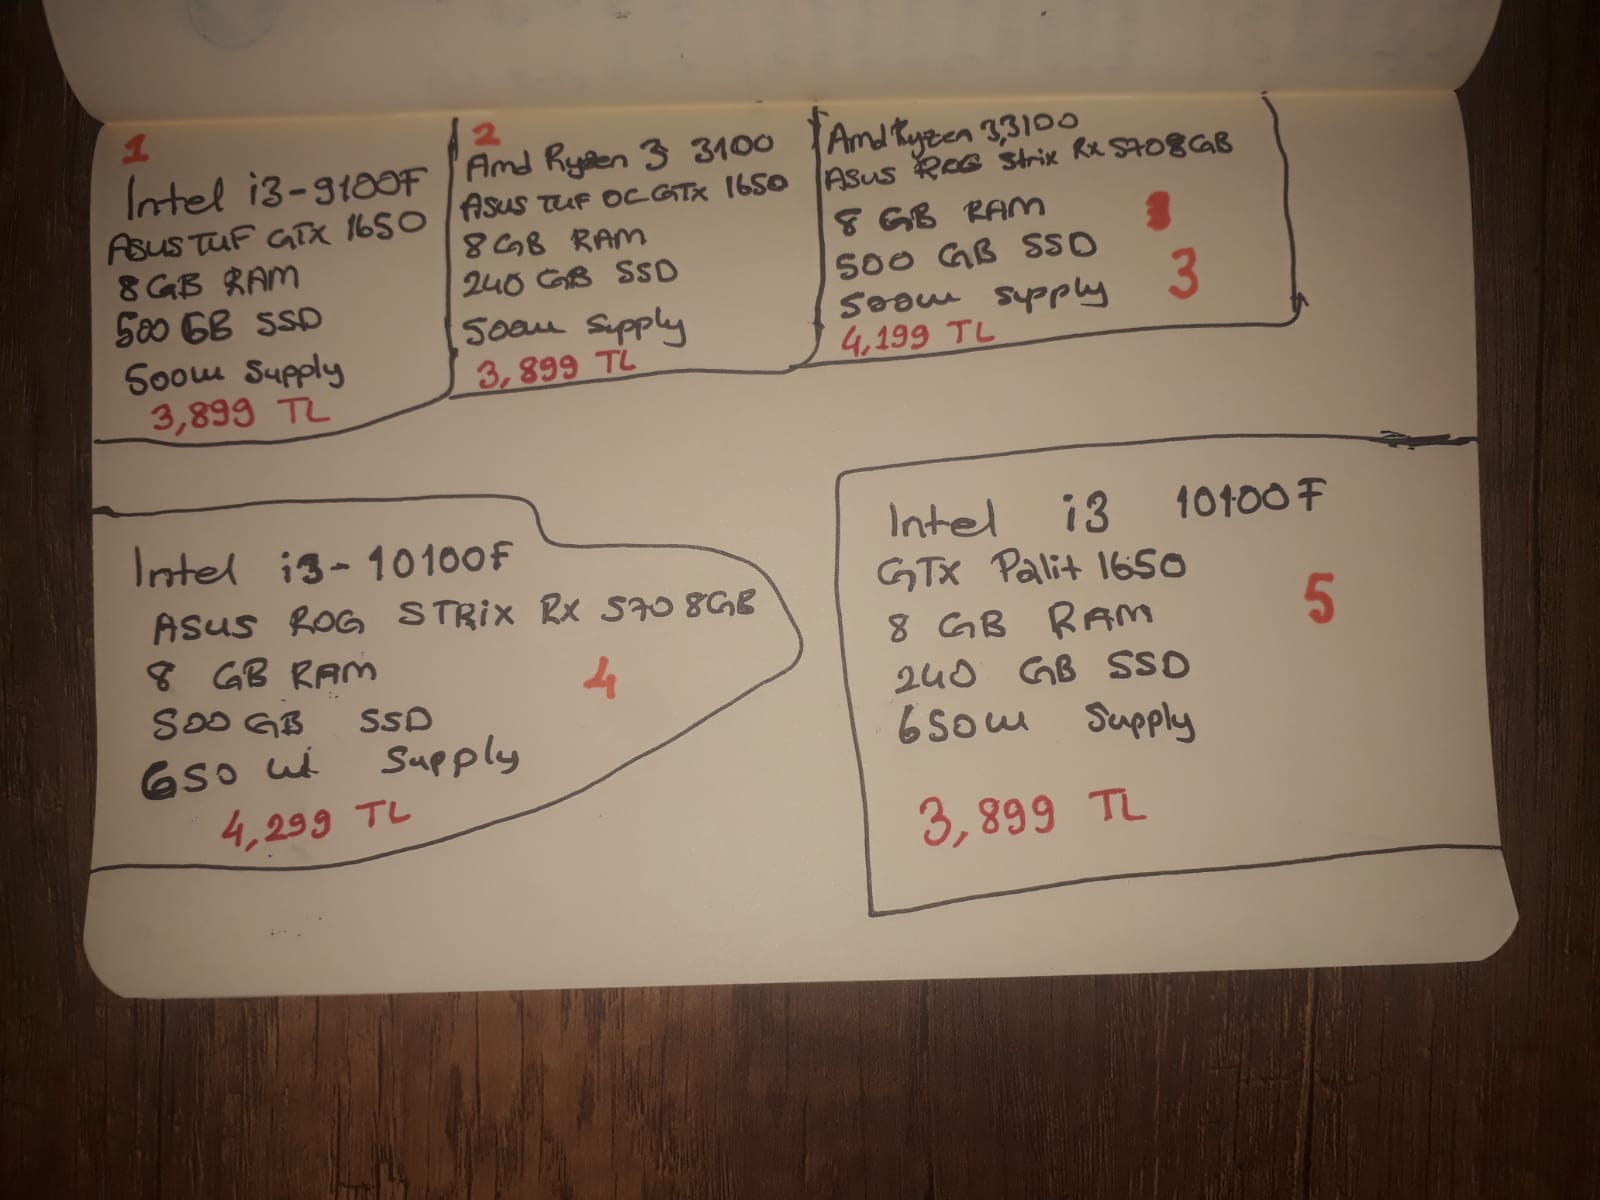 1
Intel i3-9100F
ASUS TUF GTX 1650
8GB RAM
500 GB SSD
500w Supply
3,899 TL
2
Amd Ryzen 3 3100
ASUS TUF OC GTX 1650
8GB RAM
240 GB SSD
500w Supply
3,899 TL
Amd Ryzen 3,3100
ASUS ROG Strix Rx 570 8GB
8 GB RAM
500 GB SSD
3
500w supply
4,199 TL
Intel i3-10100F
ASUS ROG STRiX RX 570 8GB
8 GB RAM
4
500 GB SSD
650 w Supply
4,299 TL
Intel i3 10100F
GTX Palit 1650
5
8 GB RAM
240 GB SSD
650w Supply
3,899 TL